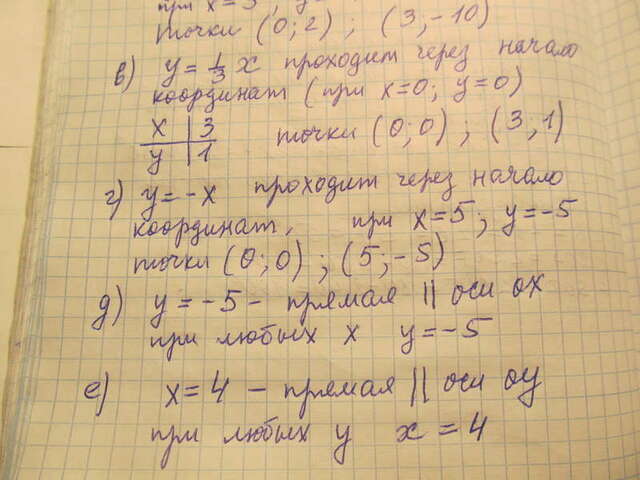 при x=3
точки (0;2) ; (3;-10)
в) y=1/3 x проходит через начало
координат (при x=0; y=0)
x | 3
y | 1
точки (0;0) ; (3;1)
г) y=-x проходит через начало
координат, при x=5; y=-5
точки (0;0) ; (5;-5)
д) y=-5 - прямая || оси ox
при любых x y=-5
е) x=4 - прямая || оси oy
при любых y x=4